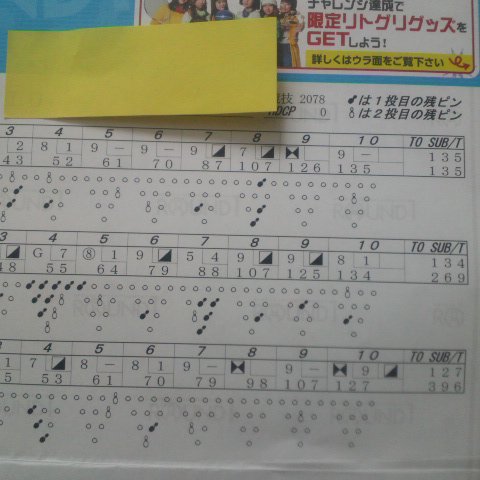 チャレンジ達成で
限定リトグリグッズを
GETしよう!
詳しくはウラ面をご覧下さい
競技 2078
HDCP 0
は1投目の残ピン
は2投目の残ピン
3 4 5 6 7 8 9 10 TO SUB/T
2 8 1 9 - 9 - 9 7 9 - 135
43 52 61 70 87 107 126 135 135
3 4 5 6 7 8 9 10 TO SUB/T
G 7 ⑧ 1 9 5 4 9 9 8 1 134
48 55 64 79 88 107 125 134 269
3 4 5 6 7 8 9 10 TO SUB/T
1 7 8 - 8 1 9 - 9 - 9 127
5 53 61 70 79 98 107 127 396